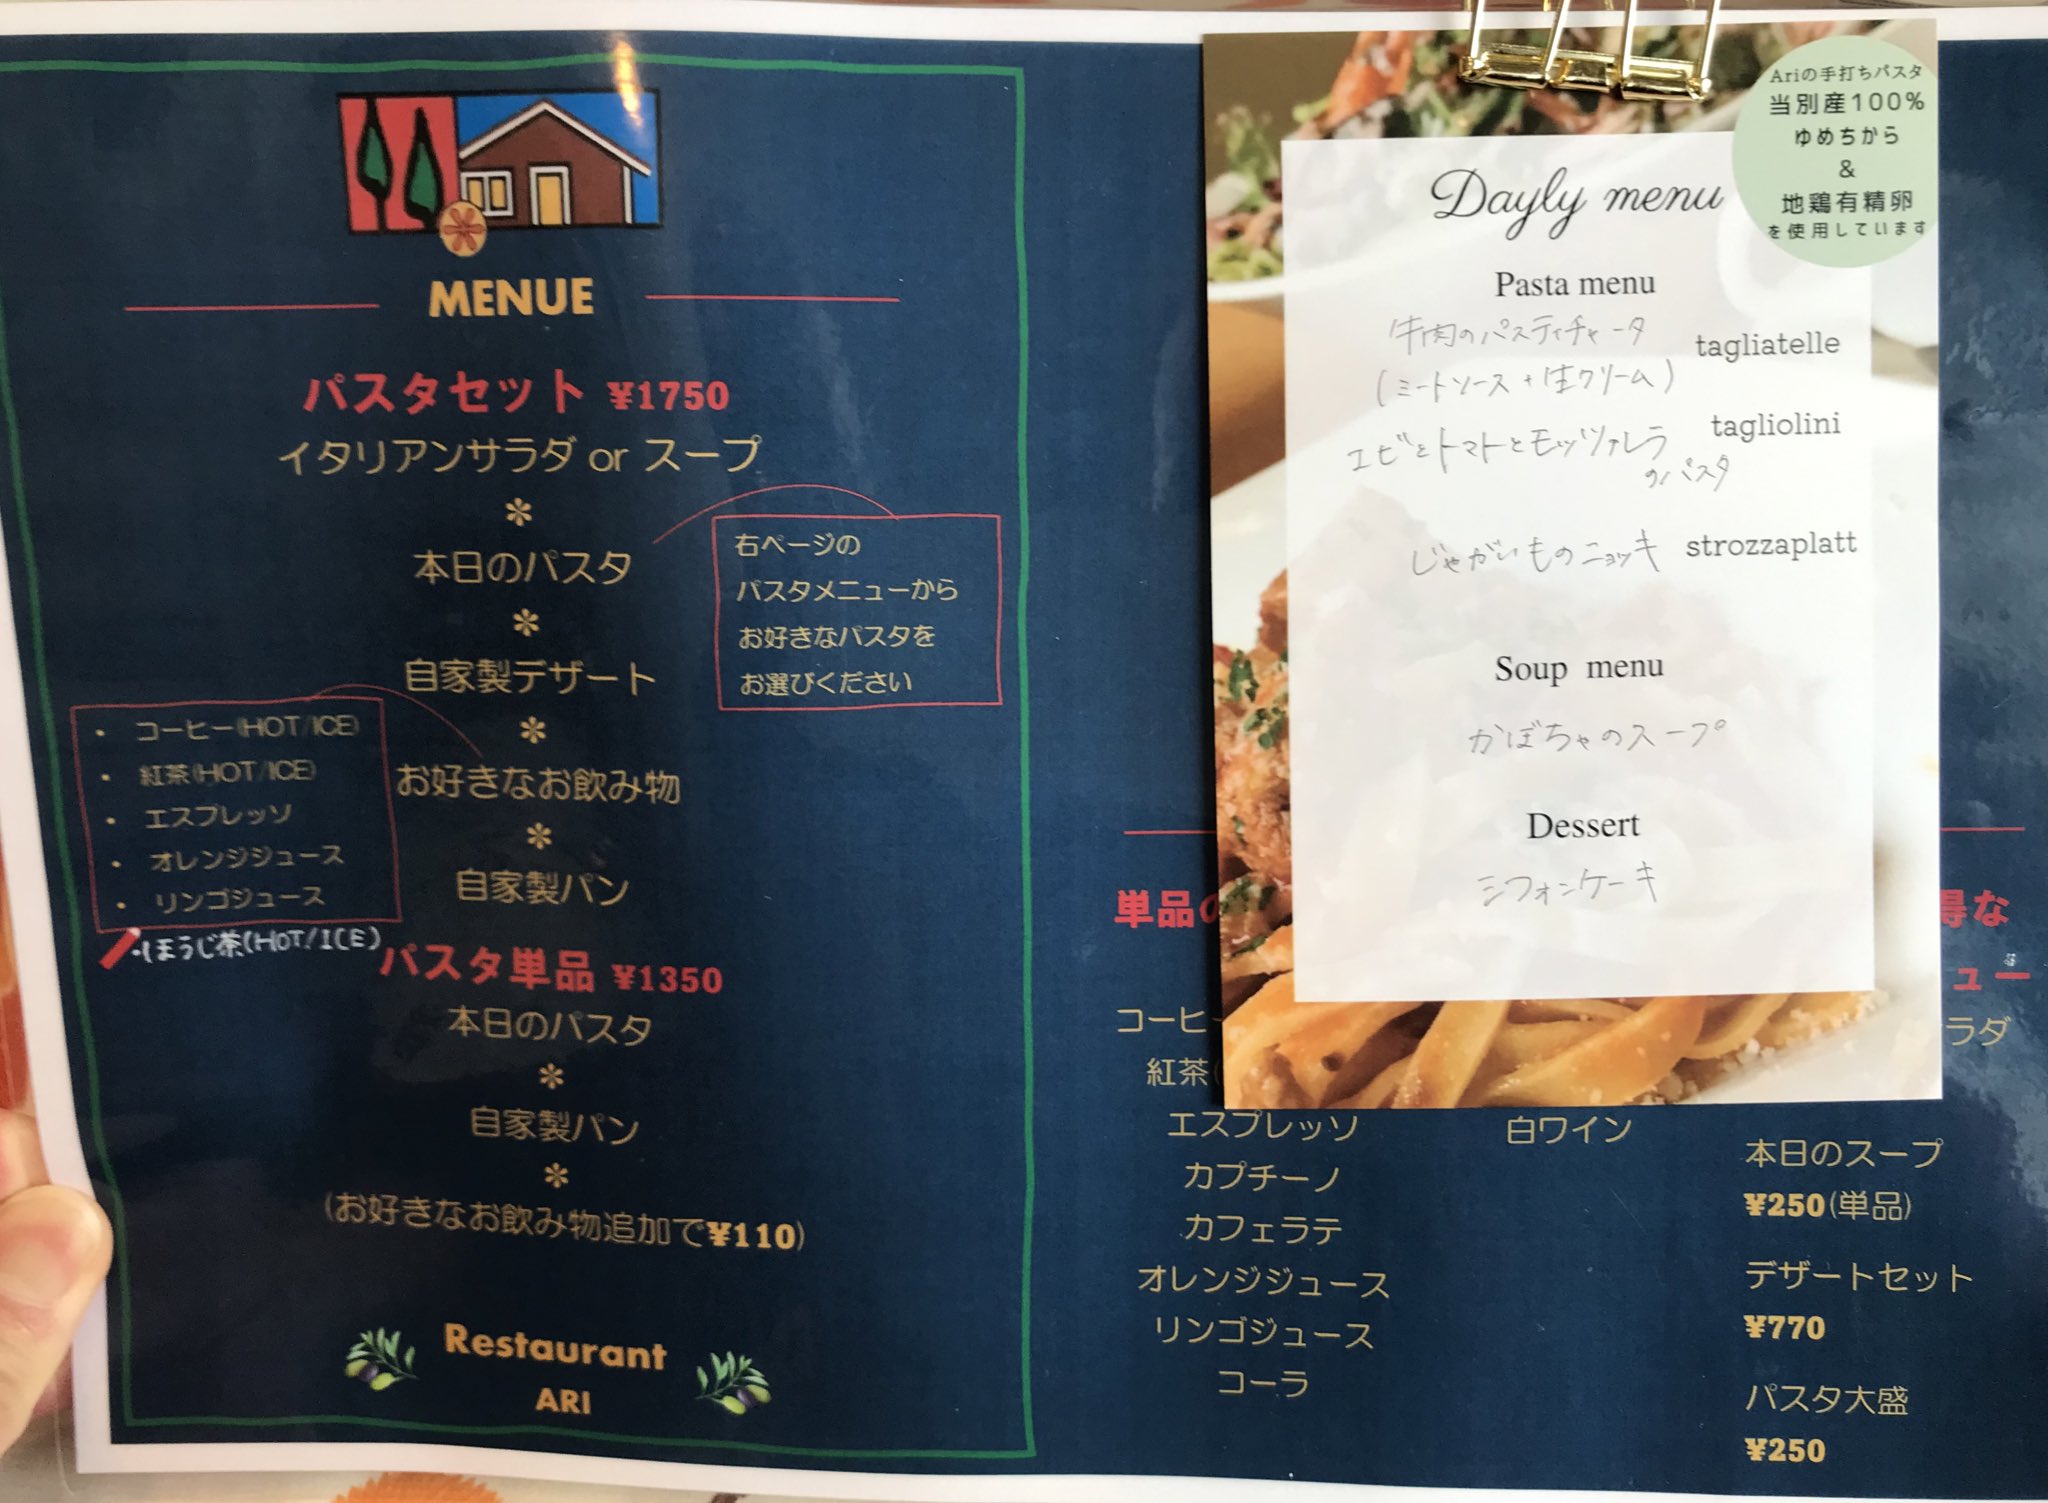 MENUE
パスタセット ¥1750
イタリアンサラダ or スープ
*
本日のパスタ
*
自家製デザート
*
お好きなお飲み物
*
自家製パン
右ページの
パスタメニューから
お好きなパスタを
お選びください
・ コーヒー(HOT/ICE)
・ 紅茶(HOT/ICE)
・ エスプレッソ
・ オレンジジュース
・ リンゴジュース
・ほうじ茶(HOT/ICE)
パスタ単品 ¥1350
本日のパスタ
*
自家製パン
*
(お好きなお飲み物追加で¥110)
Restaurant
ARI
Ariの手打ちパスタ
当別産100%
ゆめちから
&
地鶏有精卵
を使用しています
Dayly menu
Pasta menu
牛肉のパスティチャータ tagliatelle
(ミートソース+生クリーム)
エビとトマトとモッツァレラ tagliolini
のパスタ
じゃがいものニョッキ strozzaplatt
Soup menu
かぼちゃのスープ
Dessert
シフォンケーキ
単品の
コーヒ
紅茶(
エスプレッソ
カプチーノ
カフェラテ
オレンジジュース
リンゴジュース
コーラ
白ワイン
得な
ュー
ラダ
本日のスープ
¥250(単品)
デザートセット
¥770
パスタ大盛
¥250